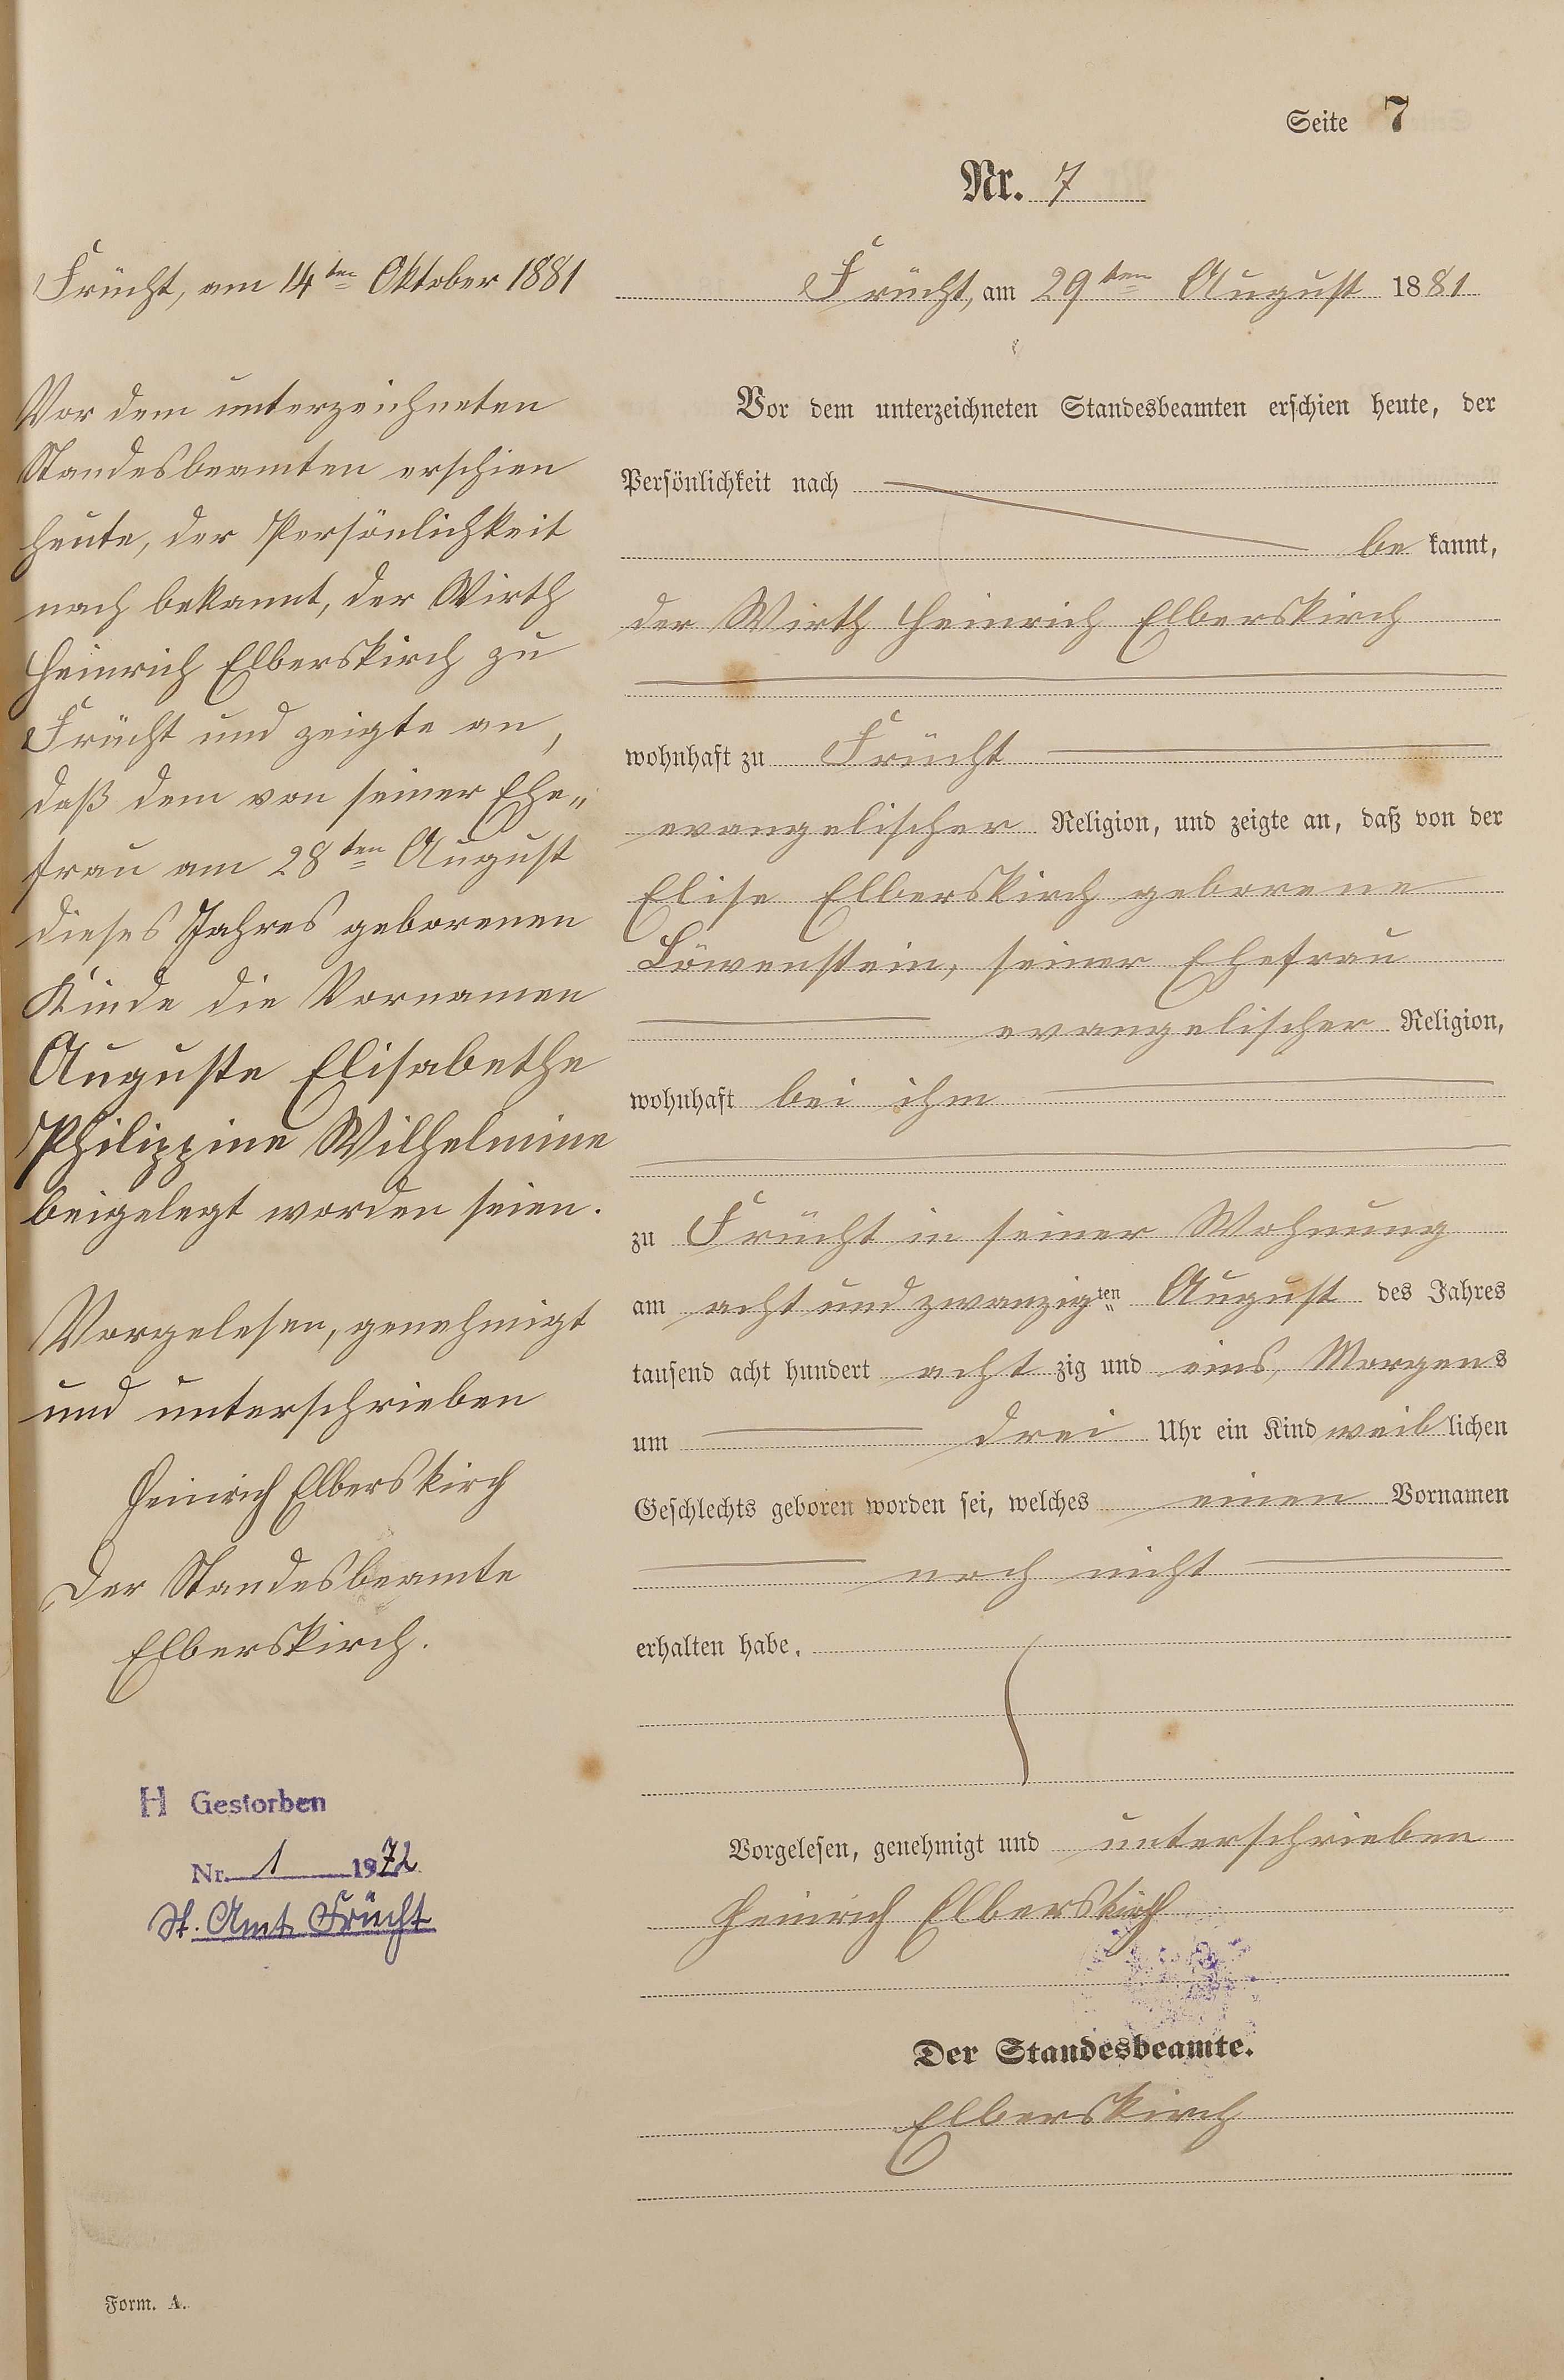 Seite 7
Nr. 7
Frücht, am 14ten Oktober 1881
Vor dem unterzeichneten
Standesbeamten erschien
heute, der Persönlichkeit
nach bekannt, der Wirth
Heinrich Elberskirch zu
Frücht und zeigte an,
daß dem von seiner Ehe„
frau am 28ten August
dieses Jahres geborenen
Kinde die Vornamen
Auguste Elisabethe
Philippine Wilhelmine
beigelegt worden seien.
Vorgelesen, genehmigt
und unterschrieben
Heinrich Elberskirch
Der Standesbeamte
Elberskirch.
H Gestorben
Nr. 1 1972
St. Amt Frücht
Frücht, am 29ten August 1881
Vor dem unterzeichneten Standesbeamten erschien heute, der
Persönlichkeit nach
be kannt,
der Wirth Heinrich Elberskirch
wohnhaft zu Frücht
evangelischer Religion, und zeigte an, daß von der
Elise Elberskirch geborene
Löwenstein, seiner Ehefrau
evangelischer Religion,
wohnhaft bei ihm
zu Frücht in seiner Wohnung
am acht und zwanzigten August des Jahres
tausend acht hundert acht zig und eins, Morgens
um drei Uhr ein Kind weib lichen
Geschlechts geboren worden sei, welches einen Vornamen
noch nicht
erhalten habe.
Vorgelesen, genehmigt und unterschrieben
Heinrich Elberskirch
Der Standesbeamte.
Elberskirch
Form. A.